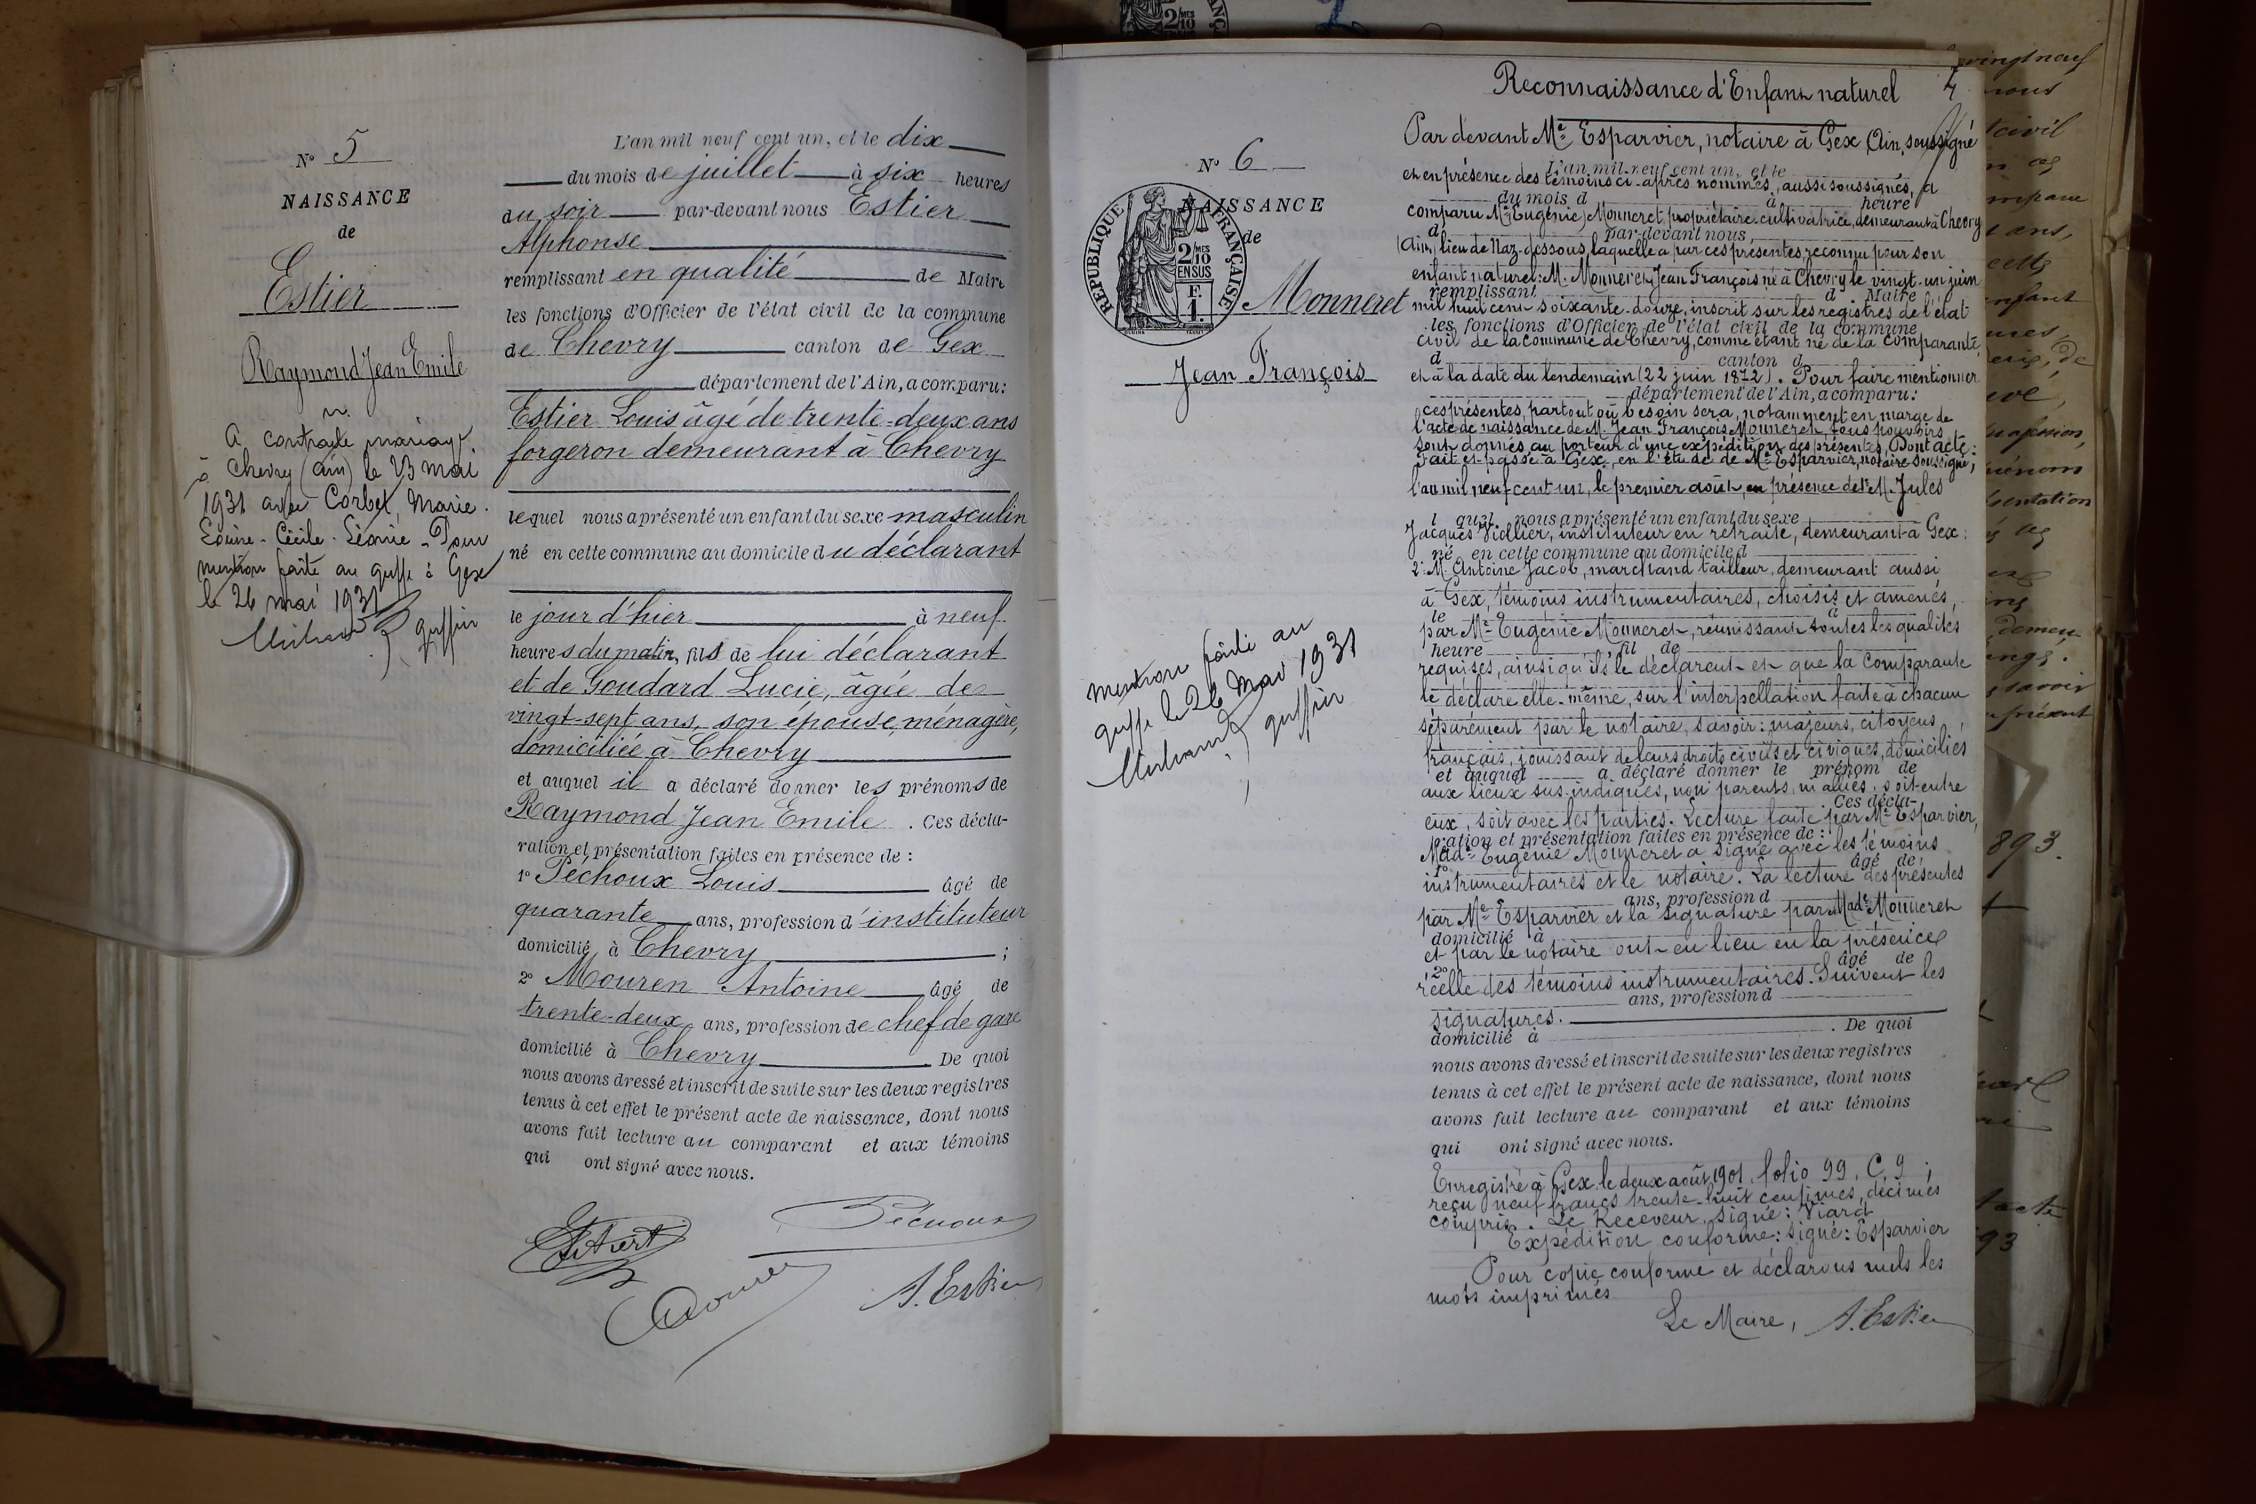 N° 5
NAISSANCE
de
Estier
Raymond Jean Emile
A contracté mariage
à Chevry (Ain) le 23 mai
1931 avec Corbet, Marie
Cécile - Léonie - Pour
mention faite au greffe à Gex
le 26 mai 1931
greffier
L'an mil neuf cent un, et le dix
du mois de juillet à six heures
du soir par-devant nous Estier
Alphonse
remplissant en qualité de Maire
les fonctions d'Officier de l'état civil de la commune
de Chevry canton de Gex
département de l'Ain, a comparu:
Estier Louis âgé de trente-deux ans
forgeron demeurant à Chevry
lequel nous a présenté un enfant du sexe masculin
né en cette commune au domicile du déclarant
le jour d'hier à neuf
heures du matin, fils de lui déclarant
et de Goudard Lucie, âgée de
vingt-sept ans, son épouse, ménagère,
domiciliée à Chevry
et auquel il a déclaré donner les prénoms de
Raymond Jean Emile. Ces décla-
ration et présentation faites en présence de :
1° Péchoux Louis âgé de
quarante ans, profession d'instituteur
domicilié à Chevry ;
2° Mouren Antoine âgé de
trente-deux ans, profession de chef de gare
domicilié à Chevry De quoi
nous avons dressé et inscrit de suite sur les deux registres
tenus à cet effet le présent acte de naissance, dont nous
avons fait lecture au comparant et aux témoins
qui ont signé avec nous.
Péchoux
A. Estier
N° 6
NAISSANCE
de
RÉPUBLIQUE FRANÇAISE
2/MES
10
EN SUS
F.
1.
Monneret
Jean François
mention faite au
greffe le 26 Mai 1931
greffier
4
Reconnaissance d'Enfant naturel
Par devant Me Esparvier, notaire à Gex, Ain, soussigné
L'an mil neuf cent un, et le
et en présence des témoins ci-après nommés, aussi soussignés, a
du mois d à heure
comparu Me Eugénie Monneret propriétaire cultivatrice, demeurant à Chevry
d par-devant nous,
(Ain) lieu de Naz-dessous, laquelle a par ces présentes, reconnu pour son
enfant naturel: M. Monneret Jean François né à Chevry le vingt-un juin
remplissant d Maire
mil huit cent soixante-douze, inscrit sur les registres de l'état
les fonctions d'Officier de l'état civil de la commune
civil de la commune de Chevry, comme étant né de la comparante,
d canton d
et à la date du lendemain (22 juin 1872). Pour faire mentionner
département de l'Ain, a comparu:
ces présentes, partout où besoin sera, notamment en marge de
l'acte de naissance de M. Jean François Monneret, tous pouvoirs
sont donnés au porteur d'une expédition des présentes, Dont acte:
Fait et passé à Gex, en l'étude de Me Esparvier, notaire soussigné;
l'an mil neuf cent un, le premier août, en présence de 1° M. Jules
l quel nous a présenté un enfant du sexe
Jacques Viollier, instituteur en retraite, demeurant à Gex;
né en cette commune au domicile d
2° M. Antoine Jacob, marchand tailleur, demeurant aussi
à Gex, témoins instrumentaires, choisis et amenés,
le à
par Me Eugénie Monneret, réunissant toutes les qualités
heure , fil de
requises, ainsi qu'ils le déclarent et que la comparante
le déclare elle-même, sur l'interpellation faite à chacun
séparément par le notaire, savoir: majeurs, citoyens
français, jouissant de leurs droits civils et civiques, domiciliés
et auquel a déclaré donner le prénom de
aux lieux sus-indiqués, non parents, ni alliés, soit entre
. Ces décla-
eux, soit avec les parties. Lecture faite par Me Esparvier,
ration et présentation faites en présence de :
Made Eugénie Monneret a signé avec les témoins
1° âgé de
instrumentaires et le notaire. La lecture des présentes
ans, profession d
par Me Esparvier et la signature par Made Monneret
domicilié à
et par le notaire ont eu lieu en la présence
2° âgé de
réelle des témoins instrumentaires. Suivent les
ans, profession d
signatures.
domicilié à . De quoi
nous avons dressé et inscrit de suite sur les deux registres
tenus à cet effet le présent acte de naissance, dont nous
avons fait lecture au comparant et aux témoins
qui ont signé avec nous.
Enregistré à Gex le deux août 1901, folio 99, C. 9;
reçu neuf francs trente-huit centimes, décimes
compris. Le Receveur, signé: Viard
Expédition conforme: signé: Esparvier
Pour copie conforme et déclarons nuls les
mots imprimés
Le Maire, A. Estier